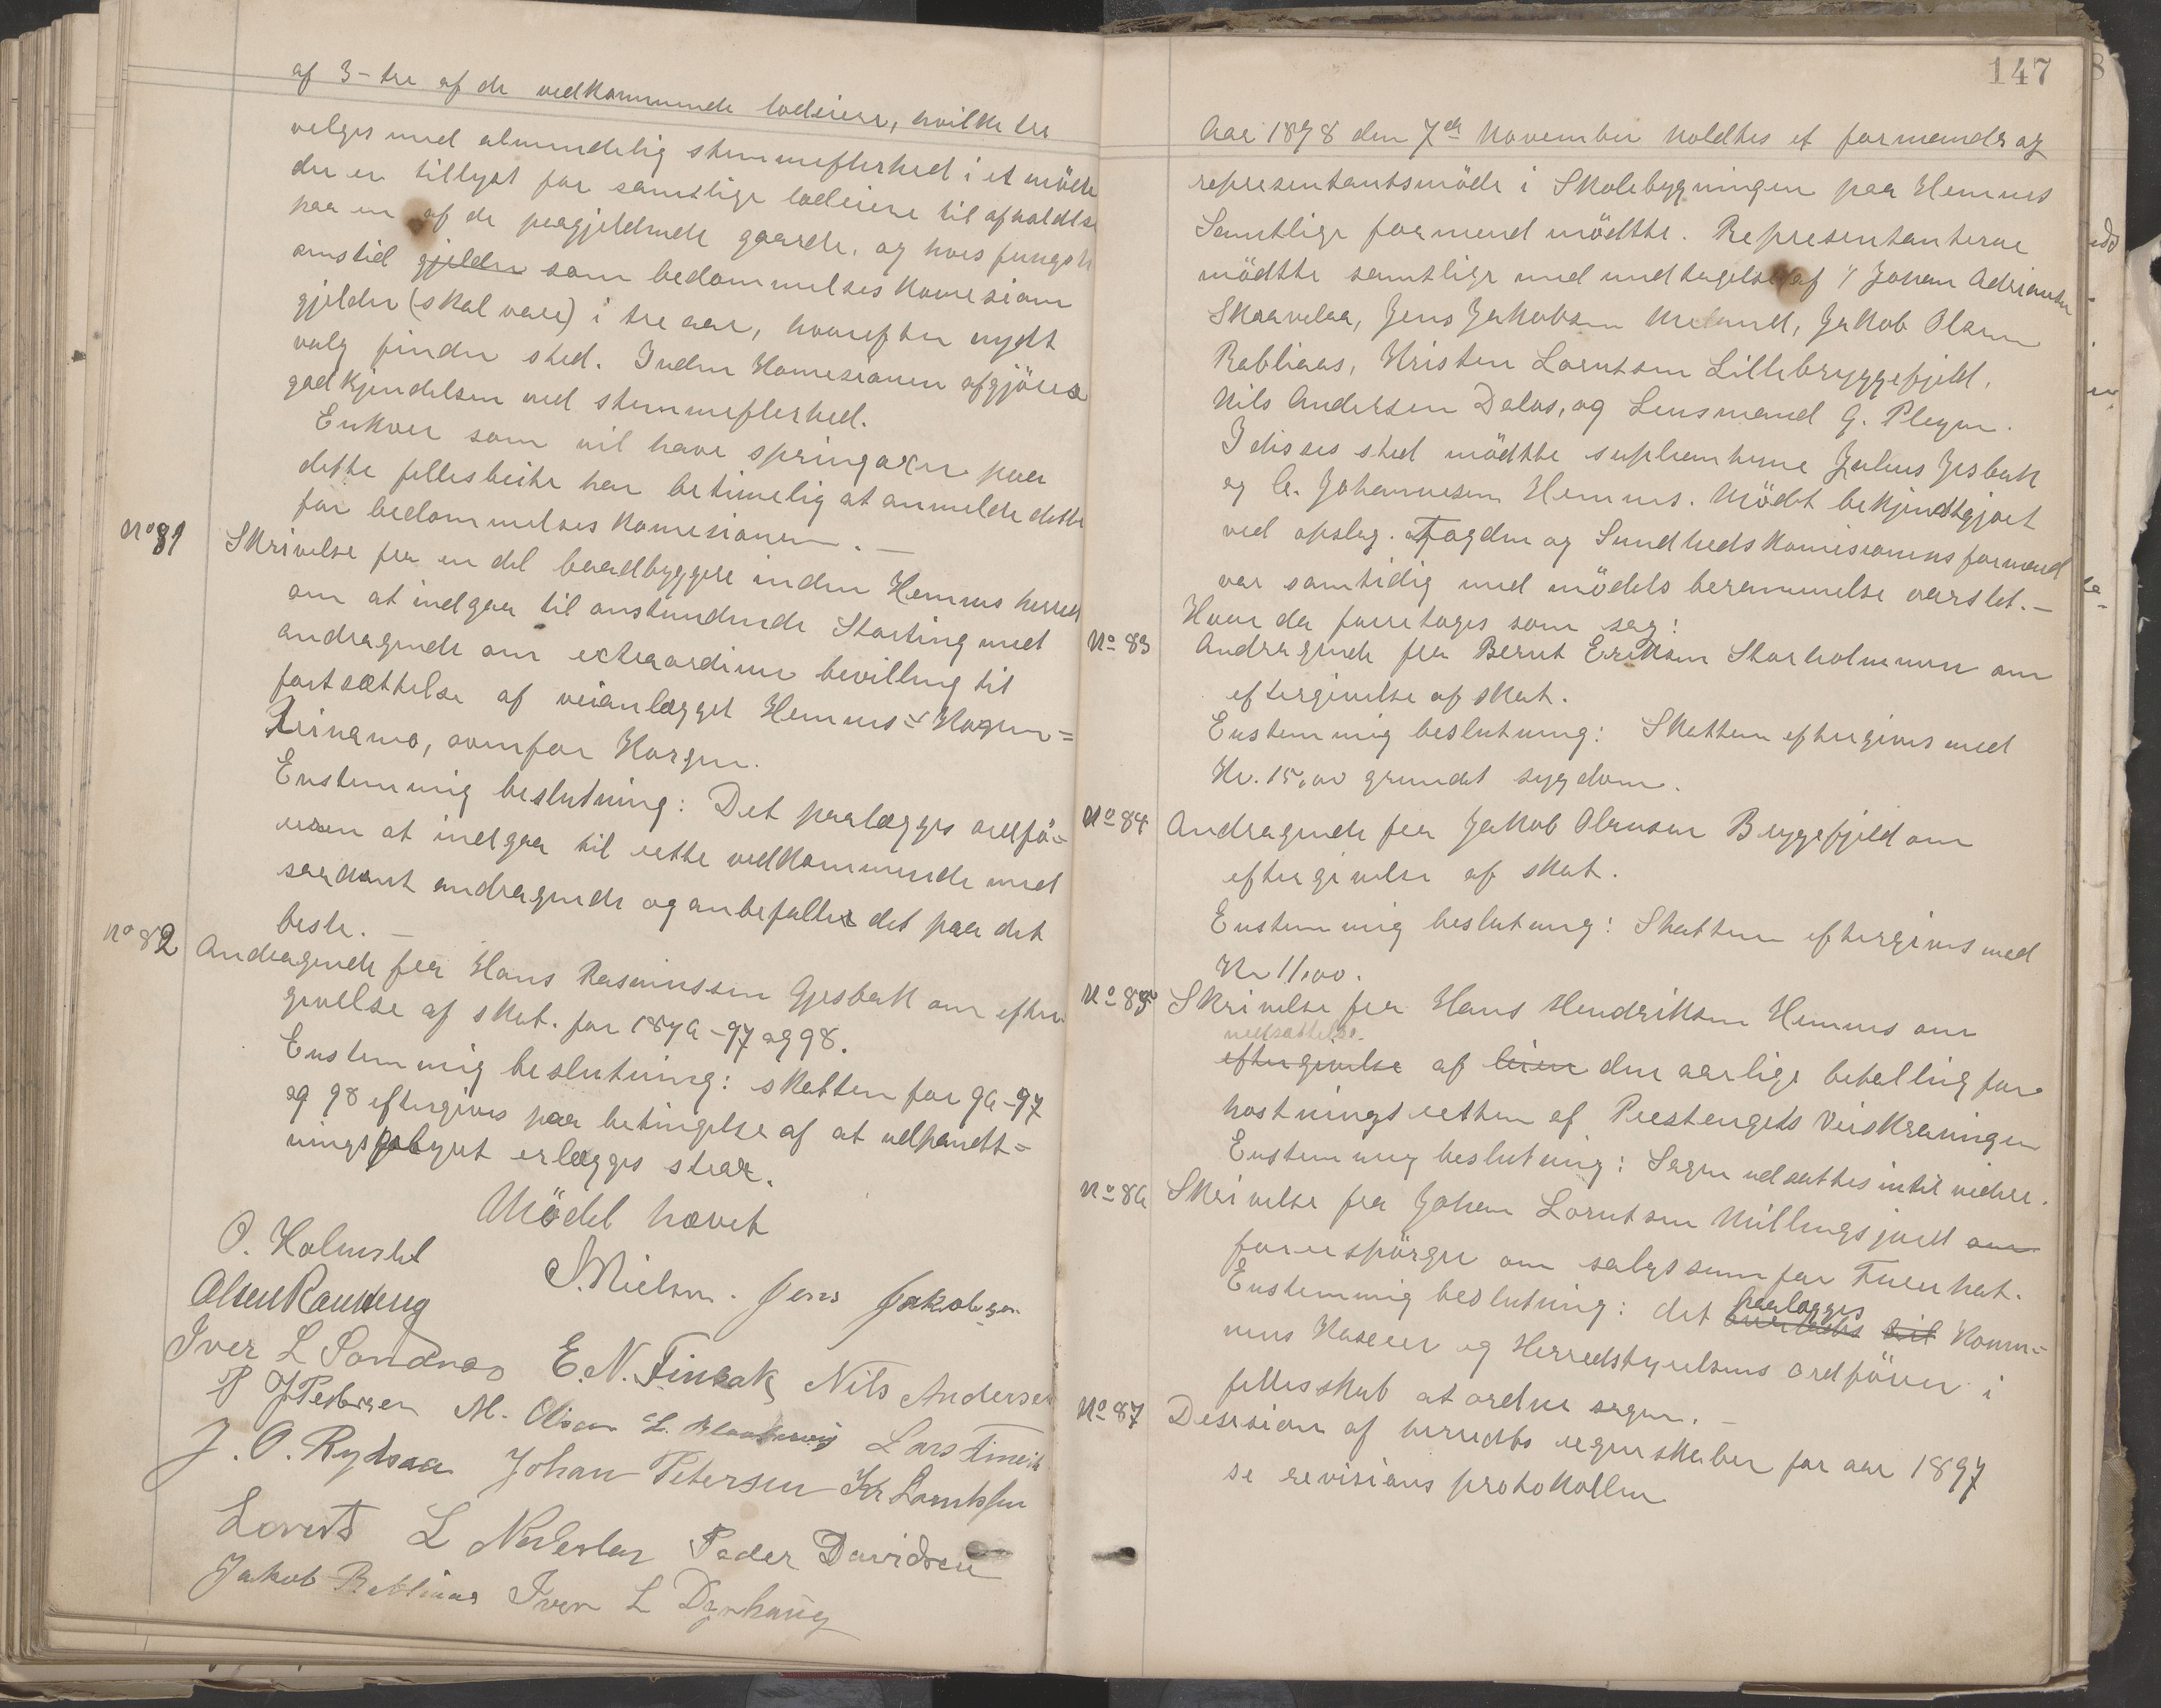 af 3-tre af de vedkommende lodeiere, hvilke tre
velges med almindelig stemmeflerhed i et möde
der er tillyst for samtlige lodeiere til afholdelse
paa en af de paagjeldende gaarde, og hvis fungsh
onstid gjelder som bedømmelses Komesion
gjelder (skal vare) i tre aar, hvorefter nydt
valg finder sted. Inden Komesionen afgjöres
godkjendelsen ved stemmeflerhed.
Enkver som vil have springoxer paa
dette fellesbeite har betimelig at anmelde dette
for bedømmelses Komesionen. —
No 81 Skrivelse fra en del baadbyggere inden Hemnes herred
om at indgaa til anstundende Storting med
andragende om extraordinær bevilling til
fortsættelse af veianlægget Hemnes - Korgen =
Leinamo, ovenfor Korgen.
Enstemmig beslutning: Det paalægges ordfö=
reren at indgaa til rette vedkommende med
saadant andragende og anbefaller det paa det
beste. —
No 82 Andragende fra Hans Rasmussen Gjesbak om efter
givelse af skat. for 1896-97 og 98.
Enstemmig beslutning: skatten for 96-97
og 98 eftergives paa betingelse af at udpandt=
ningsgebyret erlægges strax.
Mödet hævet
O. Holmslet
Olsen Rauding S. Nielsen. Jens Jakobsen
Iver L Sandnes E. N. Finbak Nils Andersen
P J Pedersen M. Olsen Lars Fineid
J. O. Rydsaa Johan Petersen Kr Lorntsen
Lornts L Nederlar Peder Davidsen
Jakob Rabliaas Iver L Dayhaug
147
Aar 1898 den 7de November holdtes et formends og
representantsmöde i Skolebygningen paa Hemnes
Samtlige formend mödtte. Representanterne
mödtte samtlige med undtagelse af 1/ Johan Adriansen
Skaavelaa, Jens Jakobsen Meland, Jakob Olsen
Rabliaas, Kristen Lorntsen Lillebryggefjeld,
Nils Andersen Dalos, og Lensmand G. Pleym.
I disses sted mödtte suplianterne Julius Jesbak
og A. Johannesen Hemnes. Mödet bekjendtgjort
ved opslag. Fogden og Sundhedskomisionens formand
var samtidig med mödets berammelse varslet. —
Hvor da foretoges som sag:
No 83 Andragende fra Bernt Eriksen Storholmen om
eftergivelse af skat.
Enstemmig beslutning: Skatten eftergives med
Kr. 15,00 grundet sygdom.
No 84 Andragende fra Jakob Olausen Bryggefjeld om
eftergivelse af skat.
Enstemmig beslutning: Skatten eftergives med
Kr 11,00.
No 85 Skrivelse fra Hans Hendriksen Hemnes om
nedsættelse.
eftergivelse af leien den aarlige betalling for
hostningsretten af Prestengets Veiskraaninger
Enstemmig beslutning: Sagen udsættes intil videre.
No 86 Skrivelse fra Johan Lorntsen Millingsjord om
forrespörger om salgssum for Tuenhat.
Enstemmig beslutning: det paalægges
overlades til Komm=
nens Kaserer og Herredstyrelsens ordförer i
fellesskab at ordne sagen. —
No 87 Desision af herredts regnskaber for aar 1897
se revisions protokollen